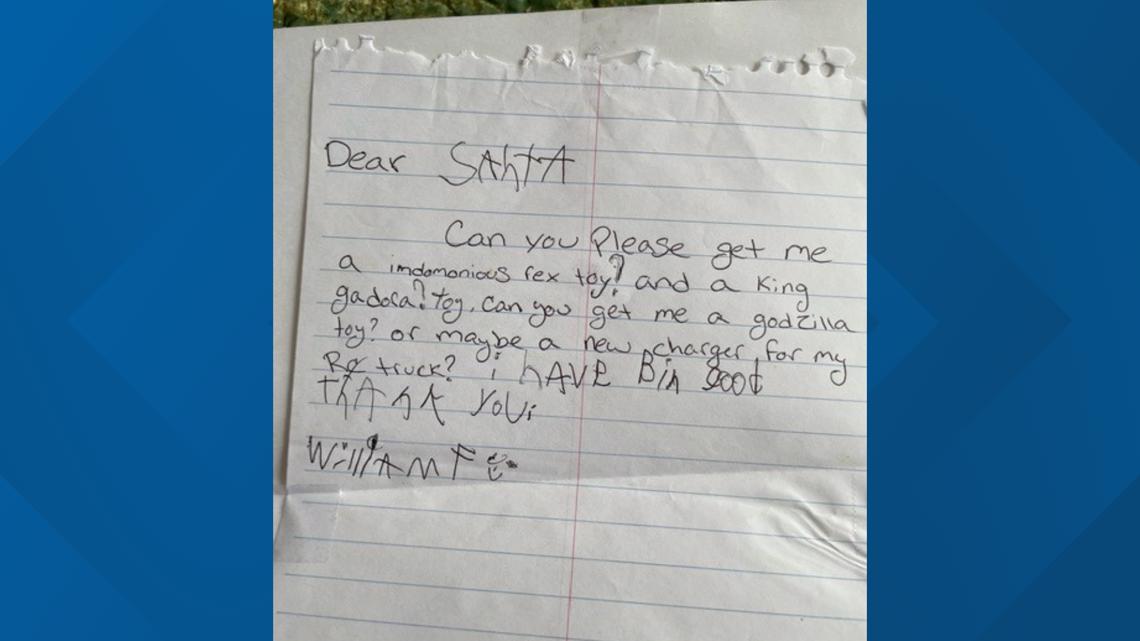 Dear SAhtA
Can you Please get me
a imdomonious rex toy? and a King
gadora? toy. Can you get me a godzilla
toy? or maybe a new charger for my
RC truck? i hAVE Bin good
THAnk YoU;
WilliAM F